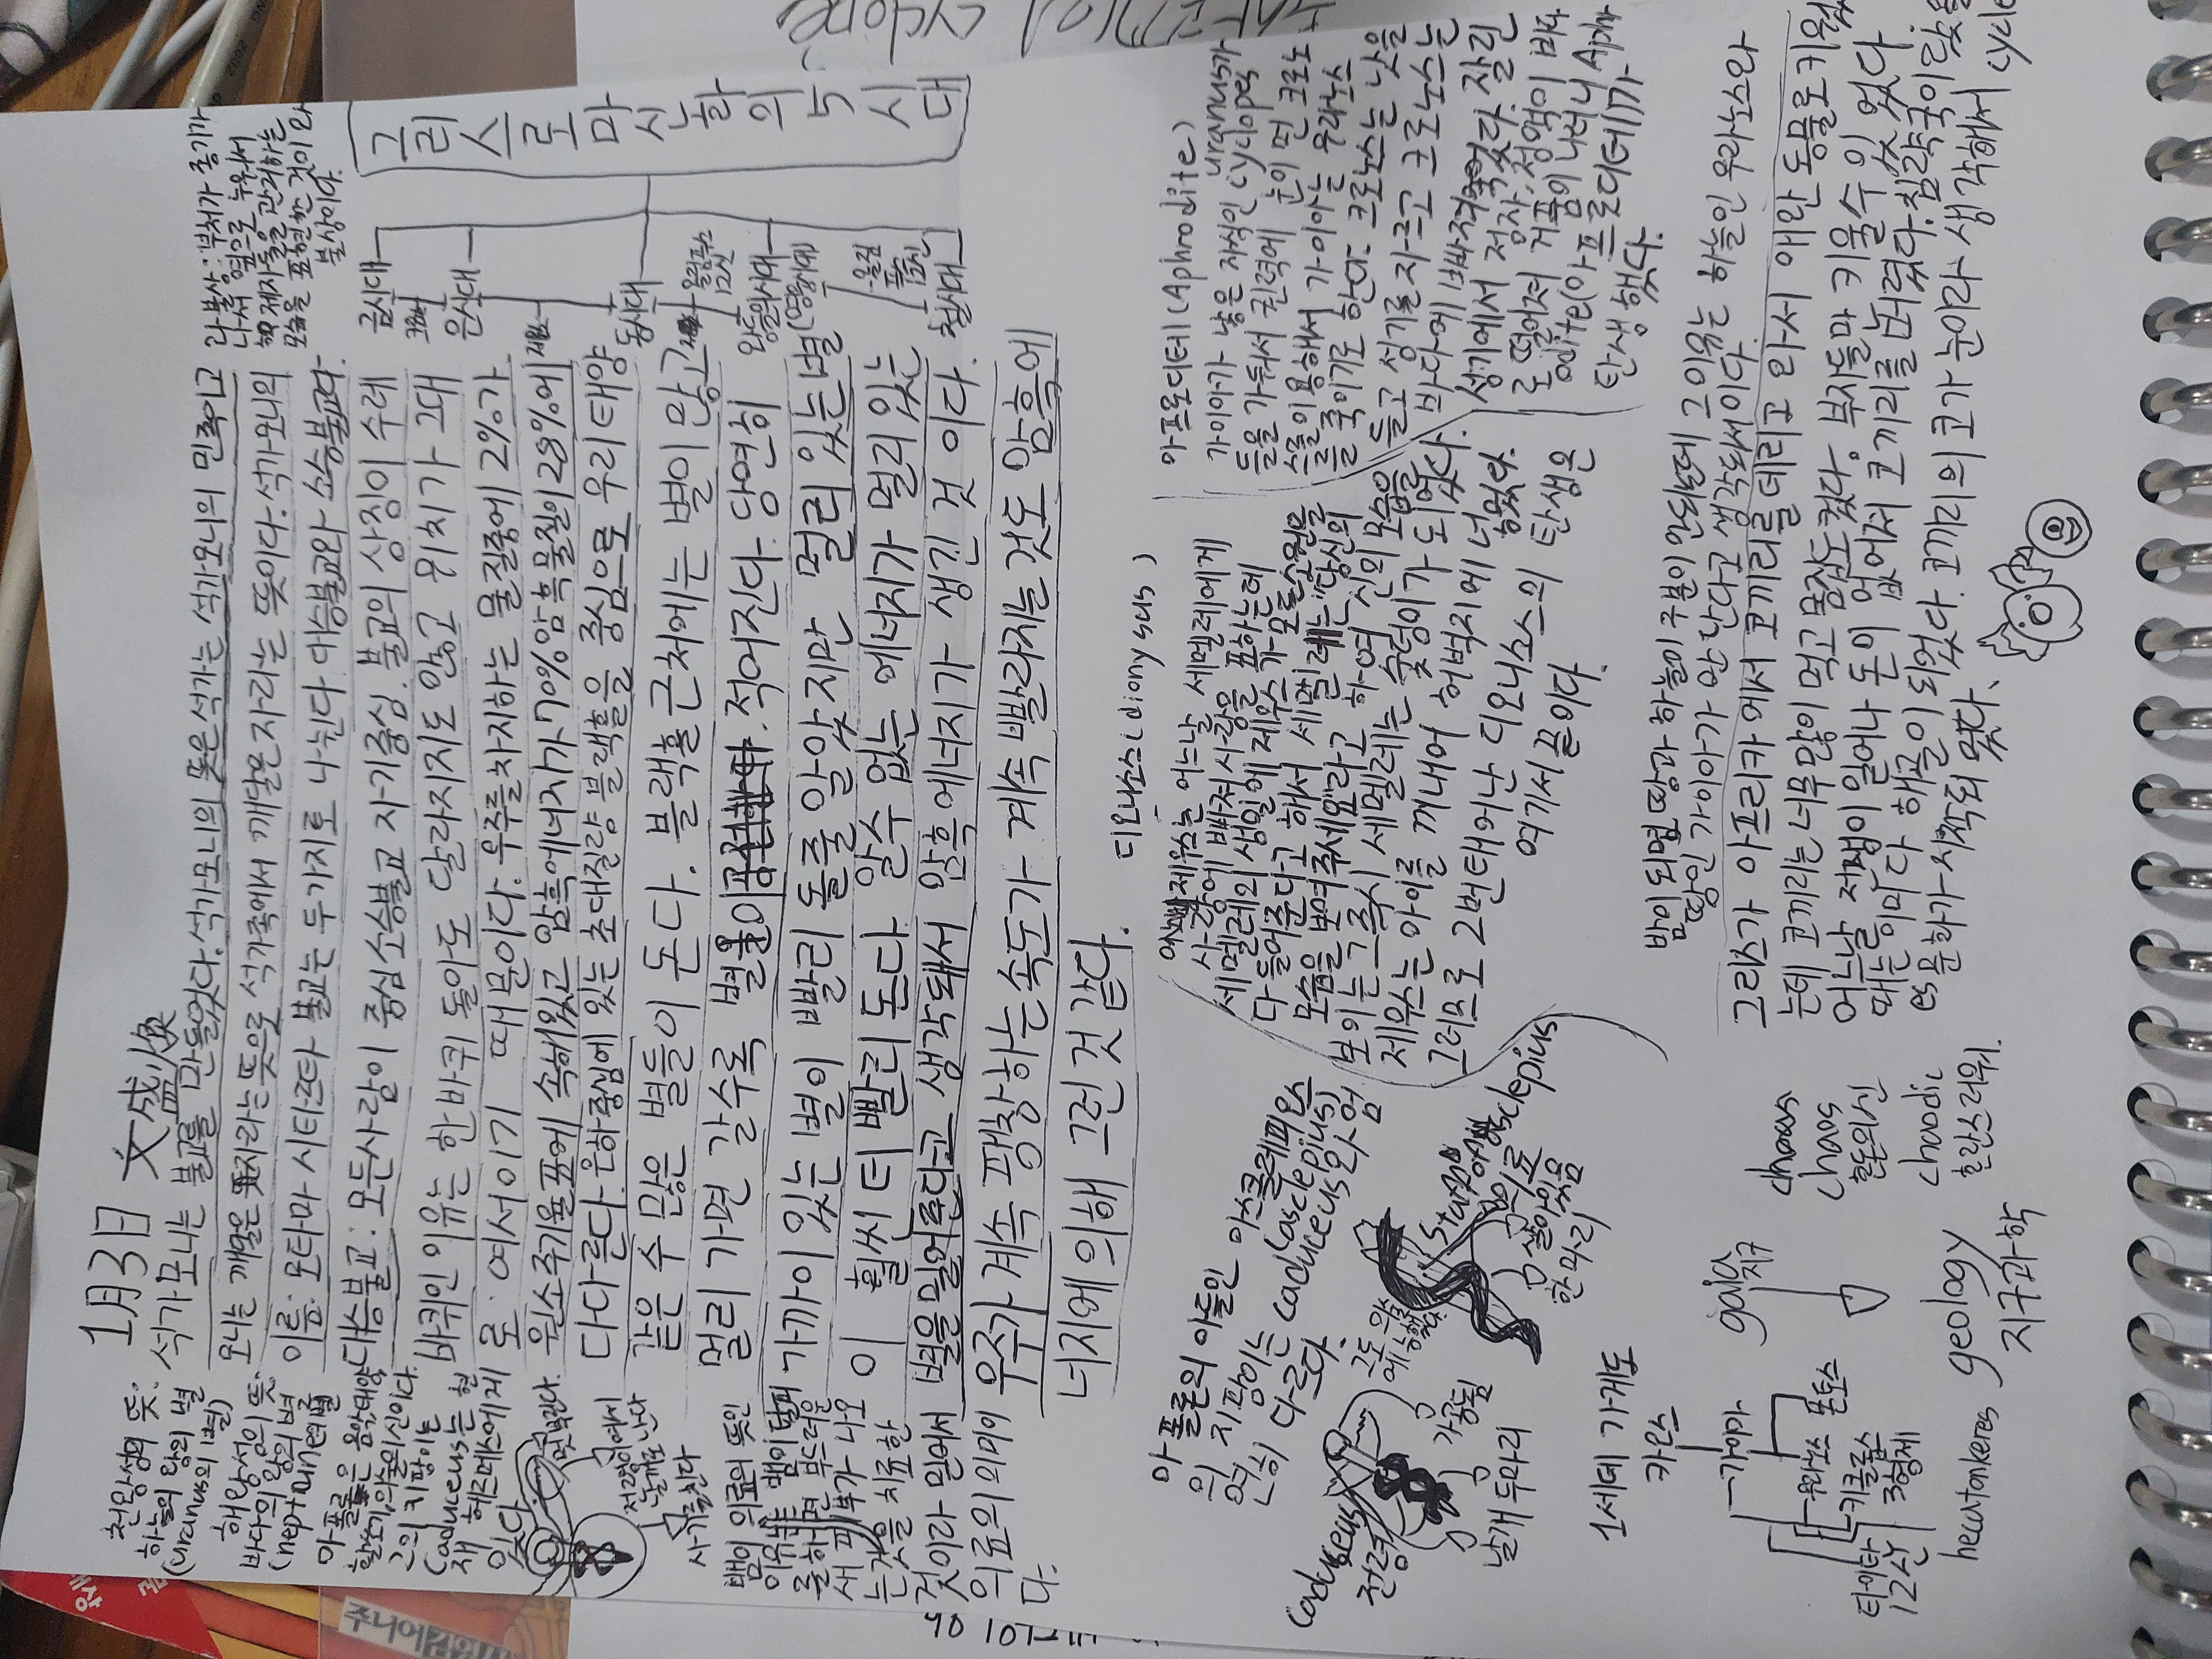 1月3日 文盛煥
석가모니는 불교를 만들었다. 석가모니의 뜻은 석가는 석가모니의 민족이고
모니는 깨달은 자라는 뜻으로 석가족에서 깨달은자라는 뜻이다. 석가모니의
이름: 모타마 시타르타 불교는 두가지로 나뉜다 대승불교와 소승불교다.
대승불교: 모든사람이 중심 소승불교 자기중심. 불교의 상징이 수레
바퀴인 이유는 한바퀴 돌아도 달라지지도 않고 위치가 그대
로 여서이기 때문이다. 우주를차지하는 물질중에 2%가
원소주기율표에 속해있고 암흑에너지가 70% 암흑물질이 28%에
다다른다. 은하중심에 있는 초대질량 블랙홀을 중심으로 우리태양
같은 수많은 별들이 돈다. 블랙홀 근처에는 별이 많고
멀리 가면 갈수록 별들이 적어진다. 당연히
가까이 있는 별이 빨리 돌줄 알았지만 멀리 있는 별
이 훨씬 더 빨리 돈다. 알수 없는 에너지가 멀리 있는
별을 밀어준다고 생각돼서 암흑에너지가 생긴 것 이다.
우주가 계속 팽창하는 속도가 계속 빨라지는 것도 암흑에
너지에 의해 그런것 같다.
와불상: 부처가 종기가
나서 옆으로 누워서
제자들을 관리하는
모습을 표현한 것이 와
불상이다.
그리스로마신화의 5시대
금시대
은시대
동시대
올림푸스
12신
왕들의시대
(영웅시대)
철시대
천왕성의 뜻:
하늘의 왕의 별
(uranus의 별)
해왕성의 뜻:
바다의 왕의 별
(neptune의 별
아폴론은 음악,태양
활쏘기,의술의신이다.
그의 지팡이는
(caduceus는 현
재 헤르메스에게
있다.
사기를친다
뱀이 의료의 뜻인
이유는 뱀이 탈피
를하면 부드러운
새 피부가 나오
는것을 치료한
것이라 믿어서
의료의 의미이
다.
아폴론의 아들인 아스클레피오스
의 지팡이는 (asclepius)
원이 다르다. caduceus와 다 엄
caduceus
전령
날개 두마리
가공됨
staff of asclepius
의료
살아있음
한마리
디오니소스(dionysus)
제우스는 어느날 세멜레에게
사랑에 빠져 사랑을 표하는데
세멜레의 생일에 제우스가 모든소원을
다 들어준다고 해서 세멜레는 "당신의
모습을 보여주세요"라고 하여 신의 모습을
보이는 그 즉시 세멜레는 숯덩이가 되었다.
제우스는 아이를 꺼내어 허벅지에 넣었다.
그러므로 2번태어난 디오니소스의 탄생은
여기서 끝이다.
아프로디테(Aphrodite)
가이아가 낳은 자식인 cyclope
들을 uranus가
가둬서 권력에 눈이 먼 크로노
스를 이용해서 가이아는 우라노스
를 죽이기도 한다. 크로노스는 낫을
들고 성기를 자르고 크로노스는
바다에 빠져 죽었다. 잘린
성기에서 정자,정액이 바다
로 떨어져 거품이 나더니 Aphr
odite(아프로디테)가
탄생했다.
밤이 되면 땅과 하늘이 구분이 안되는데 그이유는 하늘인 우라노스와
땅인 가이아가 만난다고 생각돼서이다.
그리스가 아프리카에서 코끼리를 데리고 와서 애완 동물로키웠
는데 코끼리는 너무많이 먹고 똥도 컸다. 부자들만 키울수 있었다
어느날 전쟁이 일어나 돈이 없어져 코끼리를 버렸다. 침략국이 왔을
때는 이미 다 해골이 되었다. 코끼리의 코가 눈이라 생각해서 cyclop
es 문화가 시작되었다.
1세대 가계도
카오스
가이아
우라노스 폰토스
키클롭스
3형제
티이탄
12신
gaia
지구
geology
지구과학
chaos
혼돈의신
chaodic
혼란스러워.